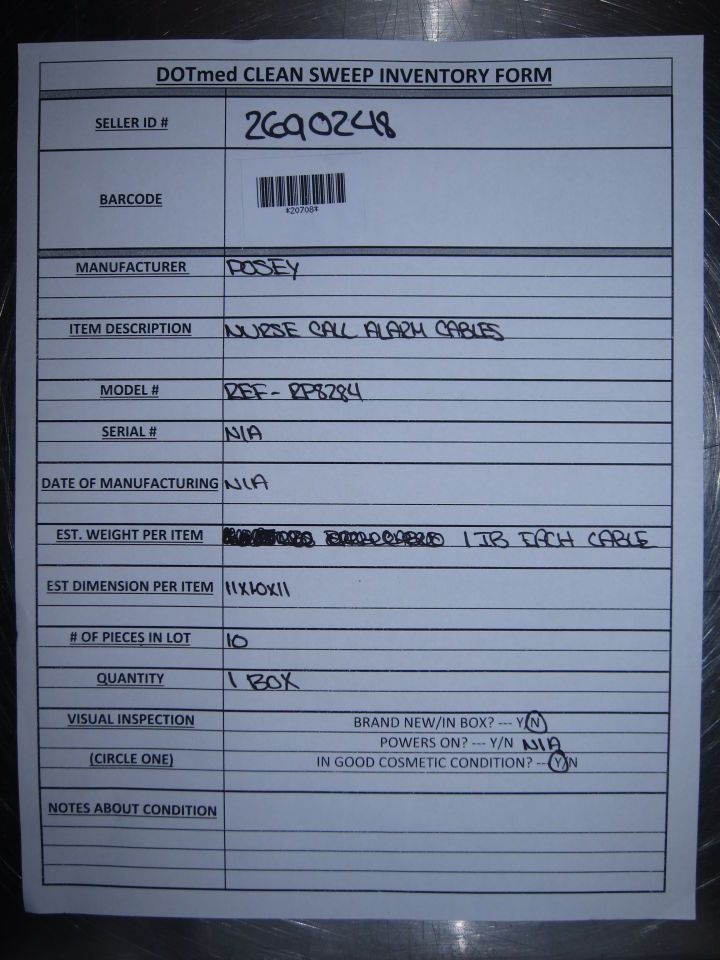 DOTmed CLEAN SWEEP INVENTORY FORM
SELLER ID # 2690248
BARCODE
*20708*
MANUFACTURER POSEY
ITEM DESCRIPTION NURSE CALL ALARM CABLES
MODEL # REF- RP8284
SERIAL # N/A
DATE OF MANUFACTURING N/A
EST. WEIGHT PER ITEM 1 IB EACH CABLE
EST DIMENSION PER ITEM 11X10X11
# OF PIECES IN LOT 10
QUANTITY 1 BOX
VISUAL INSPECTION BRAND NEW/IN BOX? --- Y/N
POWERS ON? --- Y/N N/A
(CIRCLE ONE) IN GOOD COSMETIC CONDITION? --- Y/N
NOTES ABOUT CONDITION